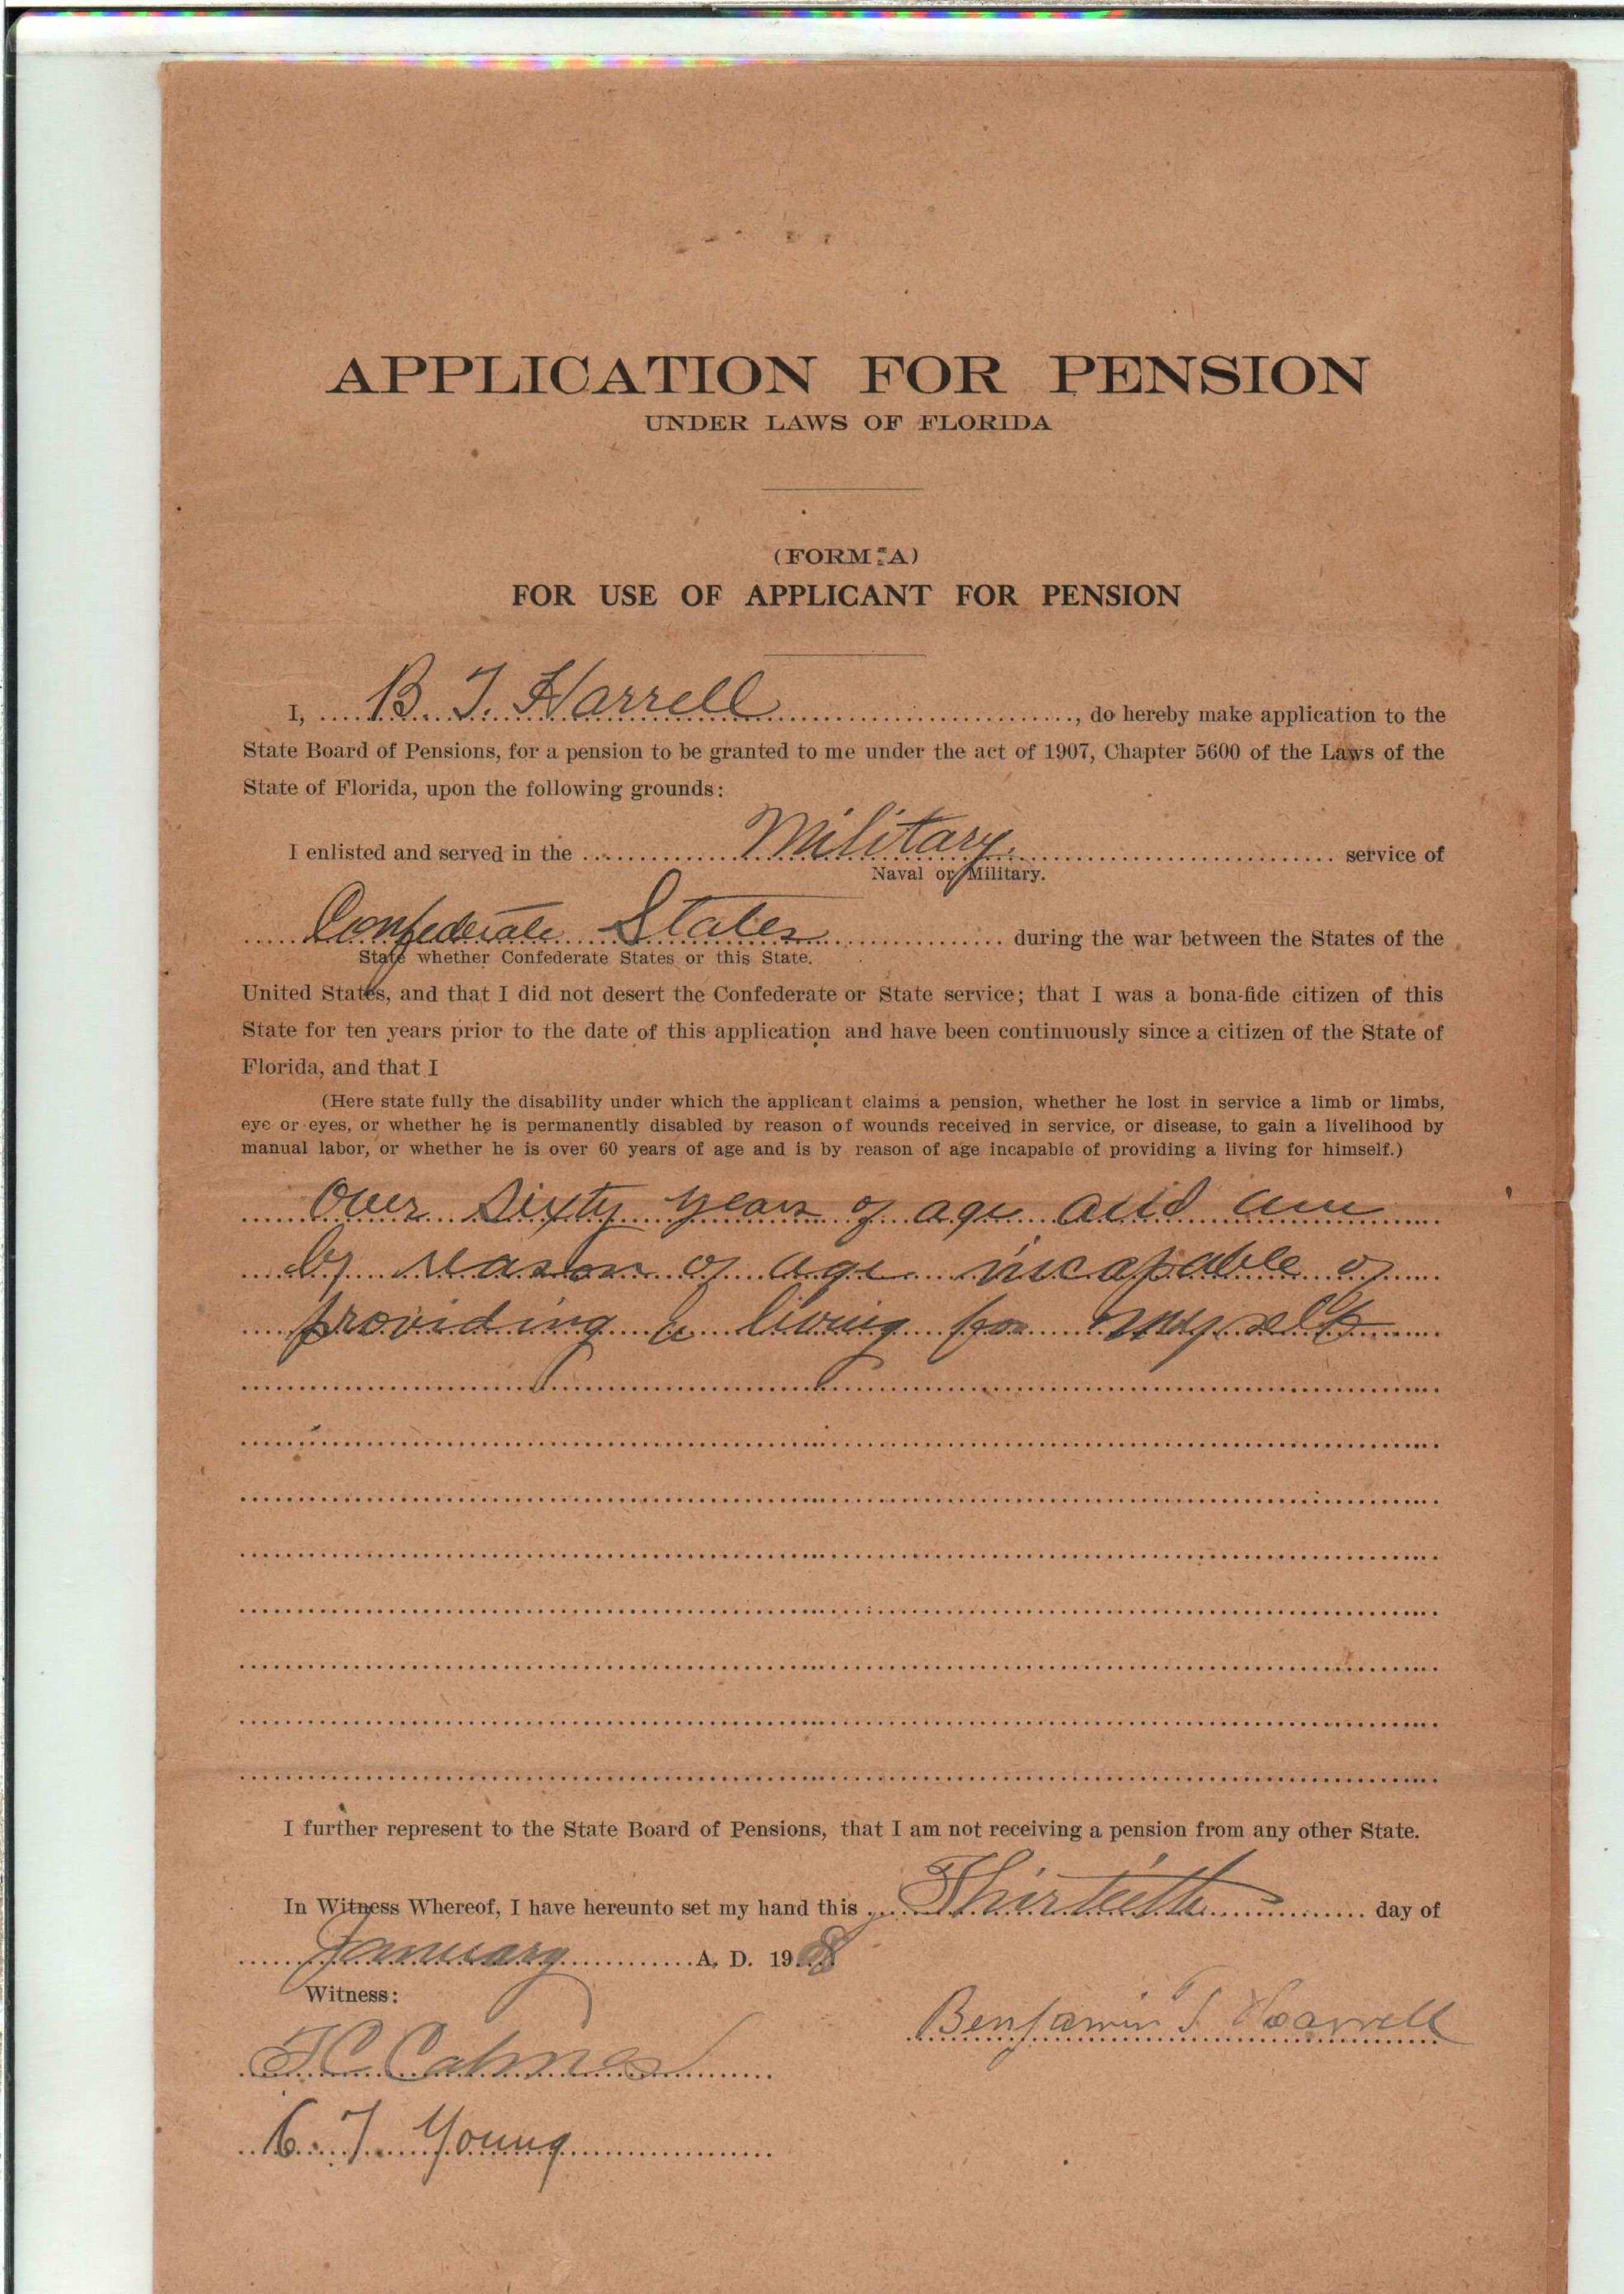 APPLICATION FOR PENSION
UNDER LAWS OF FLORIDA
(FORM A)
FOR USE OF APPLICANT FOR PENSION
I, B. T. Harrell, do hereby make application to the
State Board of Pensions, for a pension to be granted to me under the act of 1907, Chapter 5600 of the Laws of the
State of Florida, upon the following grounds:
I enlisted and served in the Military service of
Naval or Military.
Confederate States during the war between the States of the
State whether Confederate States or this State.
United States, and that I did not desert the Confederate or State service; that I was a bona-fide citizen of this
State for ten years prior to the date of this application and have been continuously since a citizen of the State of
Florida, and that I
(Here state fully the disability under which the applicant claims a pension, whether he lost in service a limb or limbs,
eye or eyes, or whether he is permanently disabled by reason of wounds received in service, or disease, to gain a livelihood by
manual labor, or whether he is over 60 years of age and is by reason of age incapable of providing a living for himself.)
Over Sixty years of age and am
by reason of age incapable of
providing a living for myself
I further represent to the State Board of Pensions, that I am not receiving a pension from any other State.
In Witness Whereof, I have hereunto set my hand this Thirtieth day of
January A. D. 1908
Witness:
Benjamin T Harrell
C. T. Young